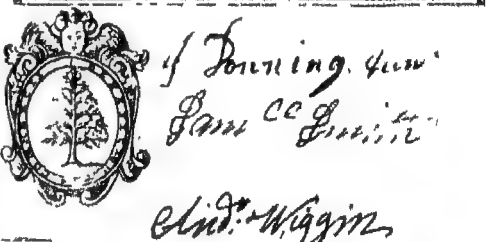 J Downing. Junr
Sam cc Smith
Andr. Wiggin